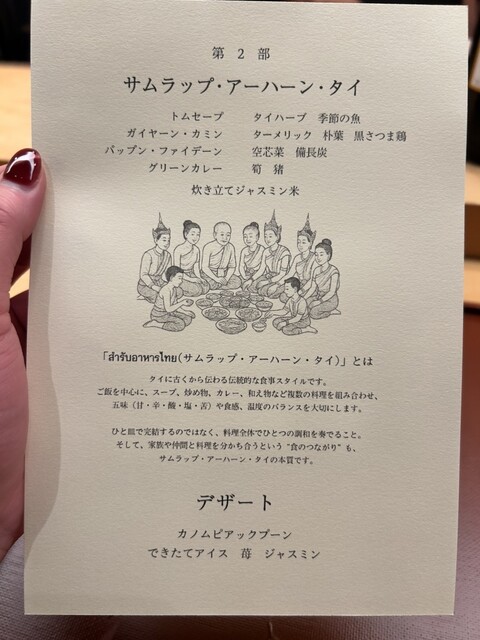 第 2 部
サムラップ・アーハーン・タイ
トムセープ　タイハーブ　季節の魚
ガイヤーン・カミン　ターメリック　朴葉　黒さつま鶏
パップン・ファイデーン　空芯菜　備長炭
グリーンカレー　筍　猪
炊き立てジャスミン米
「สำรับอาหารไทย(サムラップ・アーハーン・タイ)」とは
タイに古くから伝わる伝統的な食事スタイルです。
ご飯を中心に、スープ、炒め物、カレー、和え物など複数の料理を組み合わせ、
五味（甘・辛・酸・塩・苦）や食感、温度のバランスを大切にします。
ひと皿で完結するのではなく、料理全体でひとつの調和を奏でること。
そして、家族や仲間と料理を分かち合うという“食のつながり”も、
サムラップ・アーハーン・タイの本質です。
デザート
カノムピアックプーン
できたてアイス　苺　ジャスミン